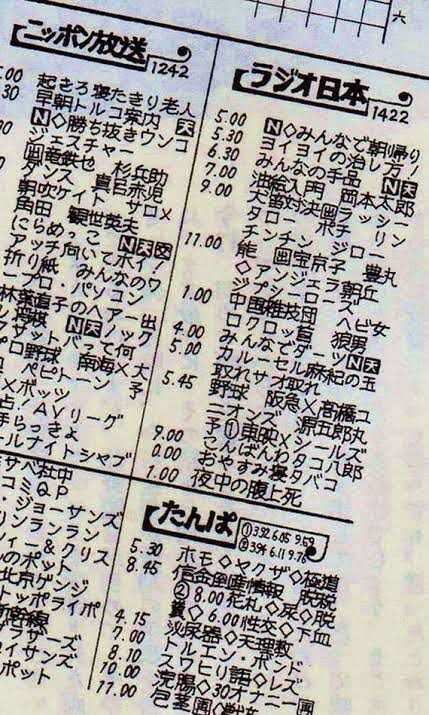 六
ニッポン放送
1242
起きろ寝たきり老人
早朝トルコ案内 天
N◇勝ち抜きウンコ
ジェスチャー
画竜鉄也 杉兵助
ダンス 真巨赤児
朝吹ケイト サロメ
角田 観世英夫
にらめっこ N天交
アッチ向いてホイ!
折り紙 みんなのワ
ープロ・パソコン
林葉直子のヘアー出
N天ノック
ザットバーって何
プロ野球 南海×大
ペピトーン 予
×ボッツ
占!AVリーグ
手らっきょ
ールナイトシャブ
ラジオ日本
1422
5.00 N◇みんなで朝帰り
5.30 ヨイヨイの治し方!
6.30 みんなの手品 N天
7.00 油絵入門 岡本太郎
9.00 犬笛対決画ラッシー
タロー ポチ リン
チンチン ジロー
11.00 能 画宝京子 豊丸
◇アンジェラ朝丘
ジプシーローズ
1.00 中国雑技団 ヘビ女
ロクロッ首 狼男
4.00 みんなでダーツN天
5.00 カルーセル麻紀の玉
取れサオ取れ
5.45 野球 阪急×高橋ユ
ニオンズ 源五郎丸
予①東映×シールズ
9.00 こんばんわタコ八郎
0.00 おやすみ寝タバコ
1.00 夜中の腹上死
サベ社中
コミQP
・ジョーサンズ
リンランラン
ィー&クリス
のポット
北京ゲンジ
トッポライポ
新幹線
ブラザーズ
イサンズ
ポット
たんぱ
①3.92 6.05 9.59
②3.94 6.11 9.76
5.30 ホモ◇ヤクザ◇極道
8.45 信金倒産情報 脱税
②8.00花札◇尿◇脱
糞◇6.00性交◇下血
4.15 泌尿器◇天理教
7.00 トルエン・ボンド
8.10 スワヒリ語◇レズ
10.00 浣腸◇30オナニー画
11.00 包茎画◇獣女